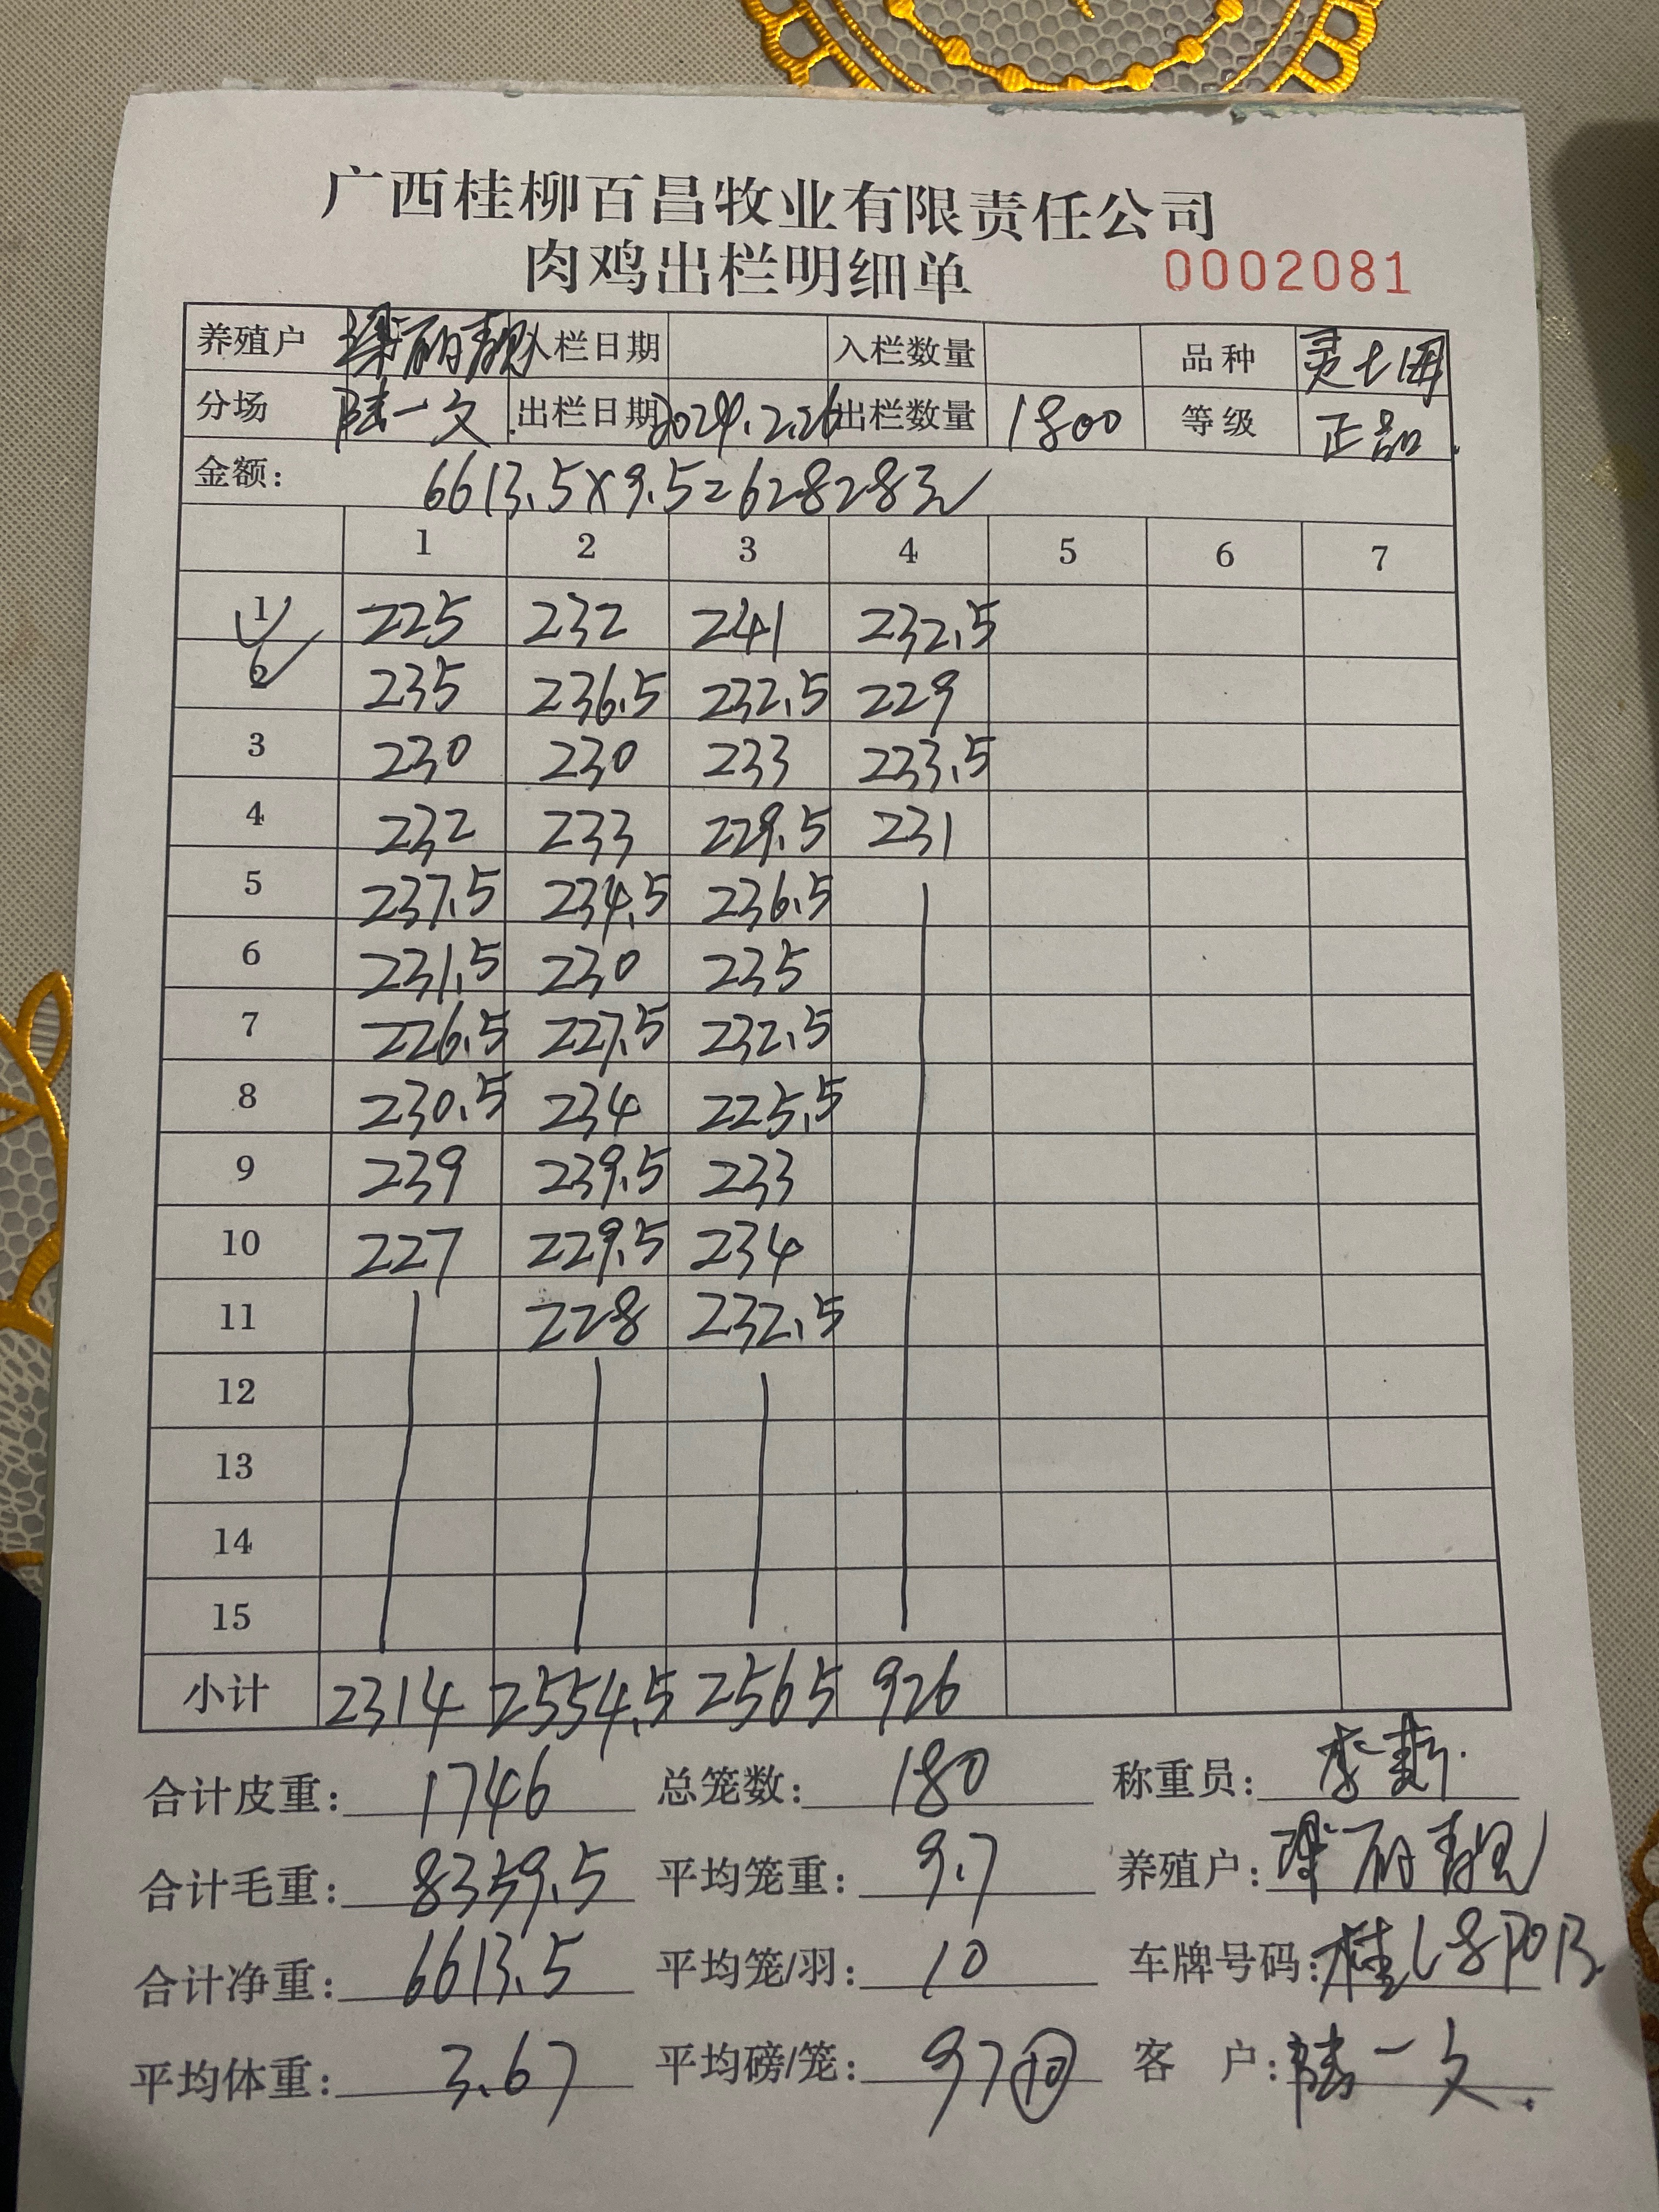 广西桂柳百昌牧业有限责任公司
肉鸡出栏明细单 0002081
养殖户 梁丽靓 入栏日期 入栏数量 品种
分场 陆一文 出栏日期 2024.2.26 出栏数量 1800 等级 正品
金额: 6613.5×9.5=62828元
1 2 3 4 5 6 7
1 225 232 241 232.5
2 235 236.5 232.5 229
3 230 230 233 233.5
4 232 233 229.5 231
5 237.5 234.5 236.5
6 231.5 230 235
7 226.5 227.5 232.5
8 230.5 234 225.5
9 239 239.5 233
10 227 229.5 234
11 228 232.5
12
13
14
15
小计 2314 2554.5 2565 926
合计皮重: 1746 总笼数: 180 称重员: 李
合计毛重: 8359.5 平均笼重: 9.7 养殖户: 梁丽靓
合计净重: 6613.5 平均笼/羽: 10 车牌号码: 桂
平均体重: 3.67 平均磅/笼: 97 客 户: 陆一文